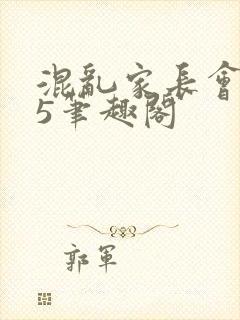 混亂家長會
5筆趣閣
郭軍